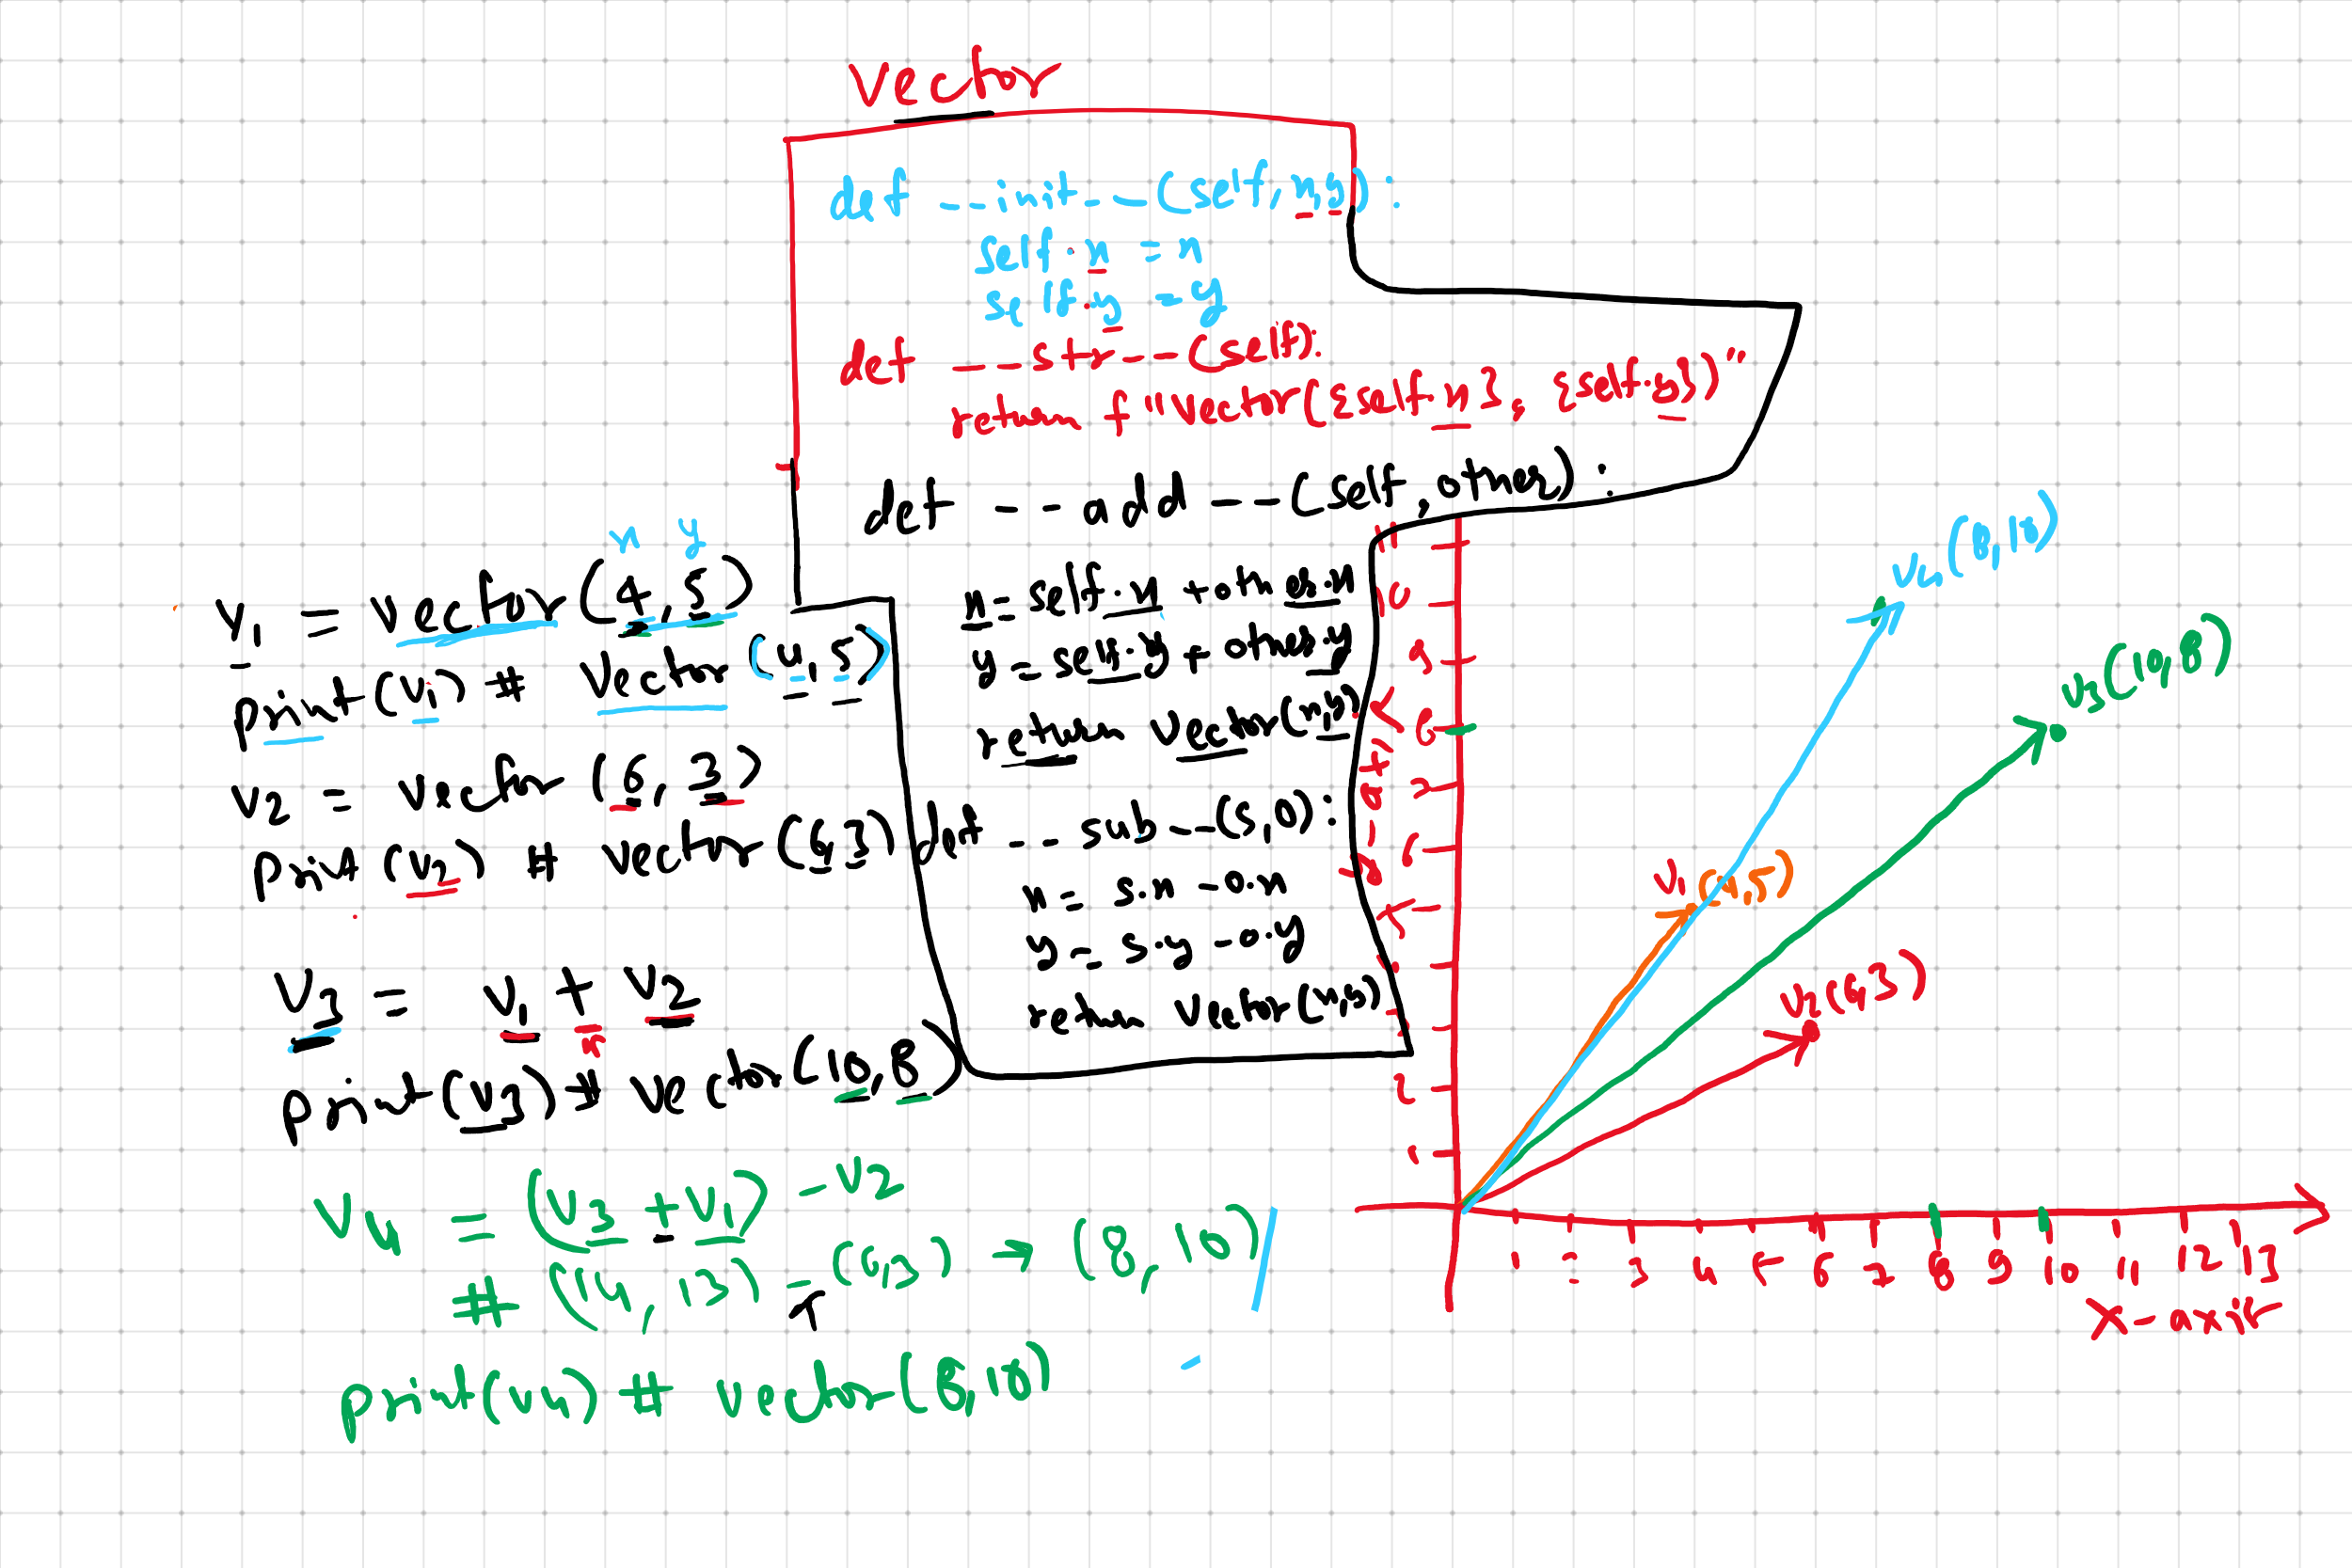 Vector
def __init__(self, x, y):
self.x = x
self.y = y
def __str__(self):
return f "Vector({self.x}, {self.y})"
def __add__(self, other):
x = self.x + other.x
y = self.y + other.y
return Vector(x,y)
def __sub__(s,o):
x = s.x - o.x
y = s.y - o.y
return Vector(x,y)
x y
V1 = Vector (4, 5)
print(V1) # Vector (4, 5)
V2 = Vector (6, 3)
print (V2) # Vector (6,3)
V3 = V1 + V2
print(V3) # Vector(10,8)
V4 = (V3 + V1) - V2
# (14, 13) - (6,3) → (8, 10)
print(V4) # Vector(8,10)
V4 (8,10)
V3(10,8)
V1 (4,5)
V2(6,3)
11
10
9
8
7
6
2
1
y-axis
1 2 3 4 5 6 7 8 9 10 11 12 13
X-axis